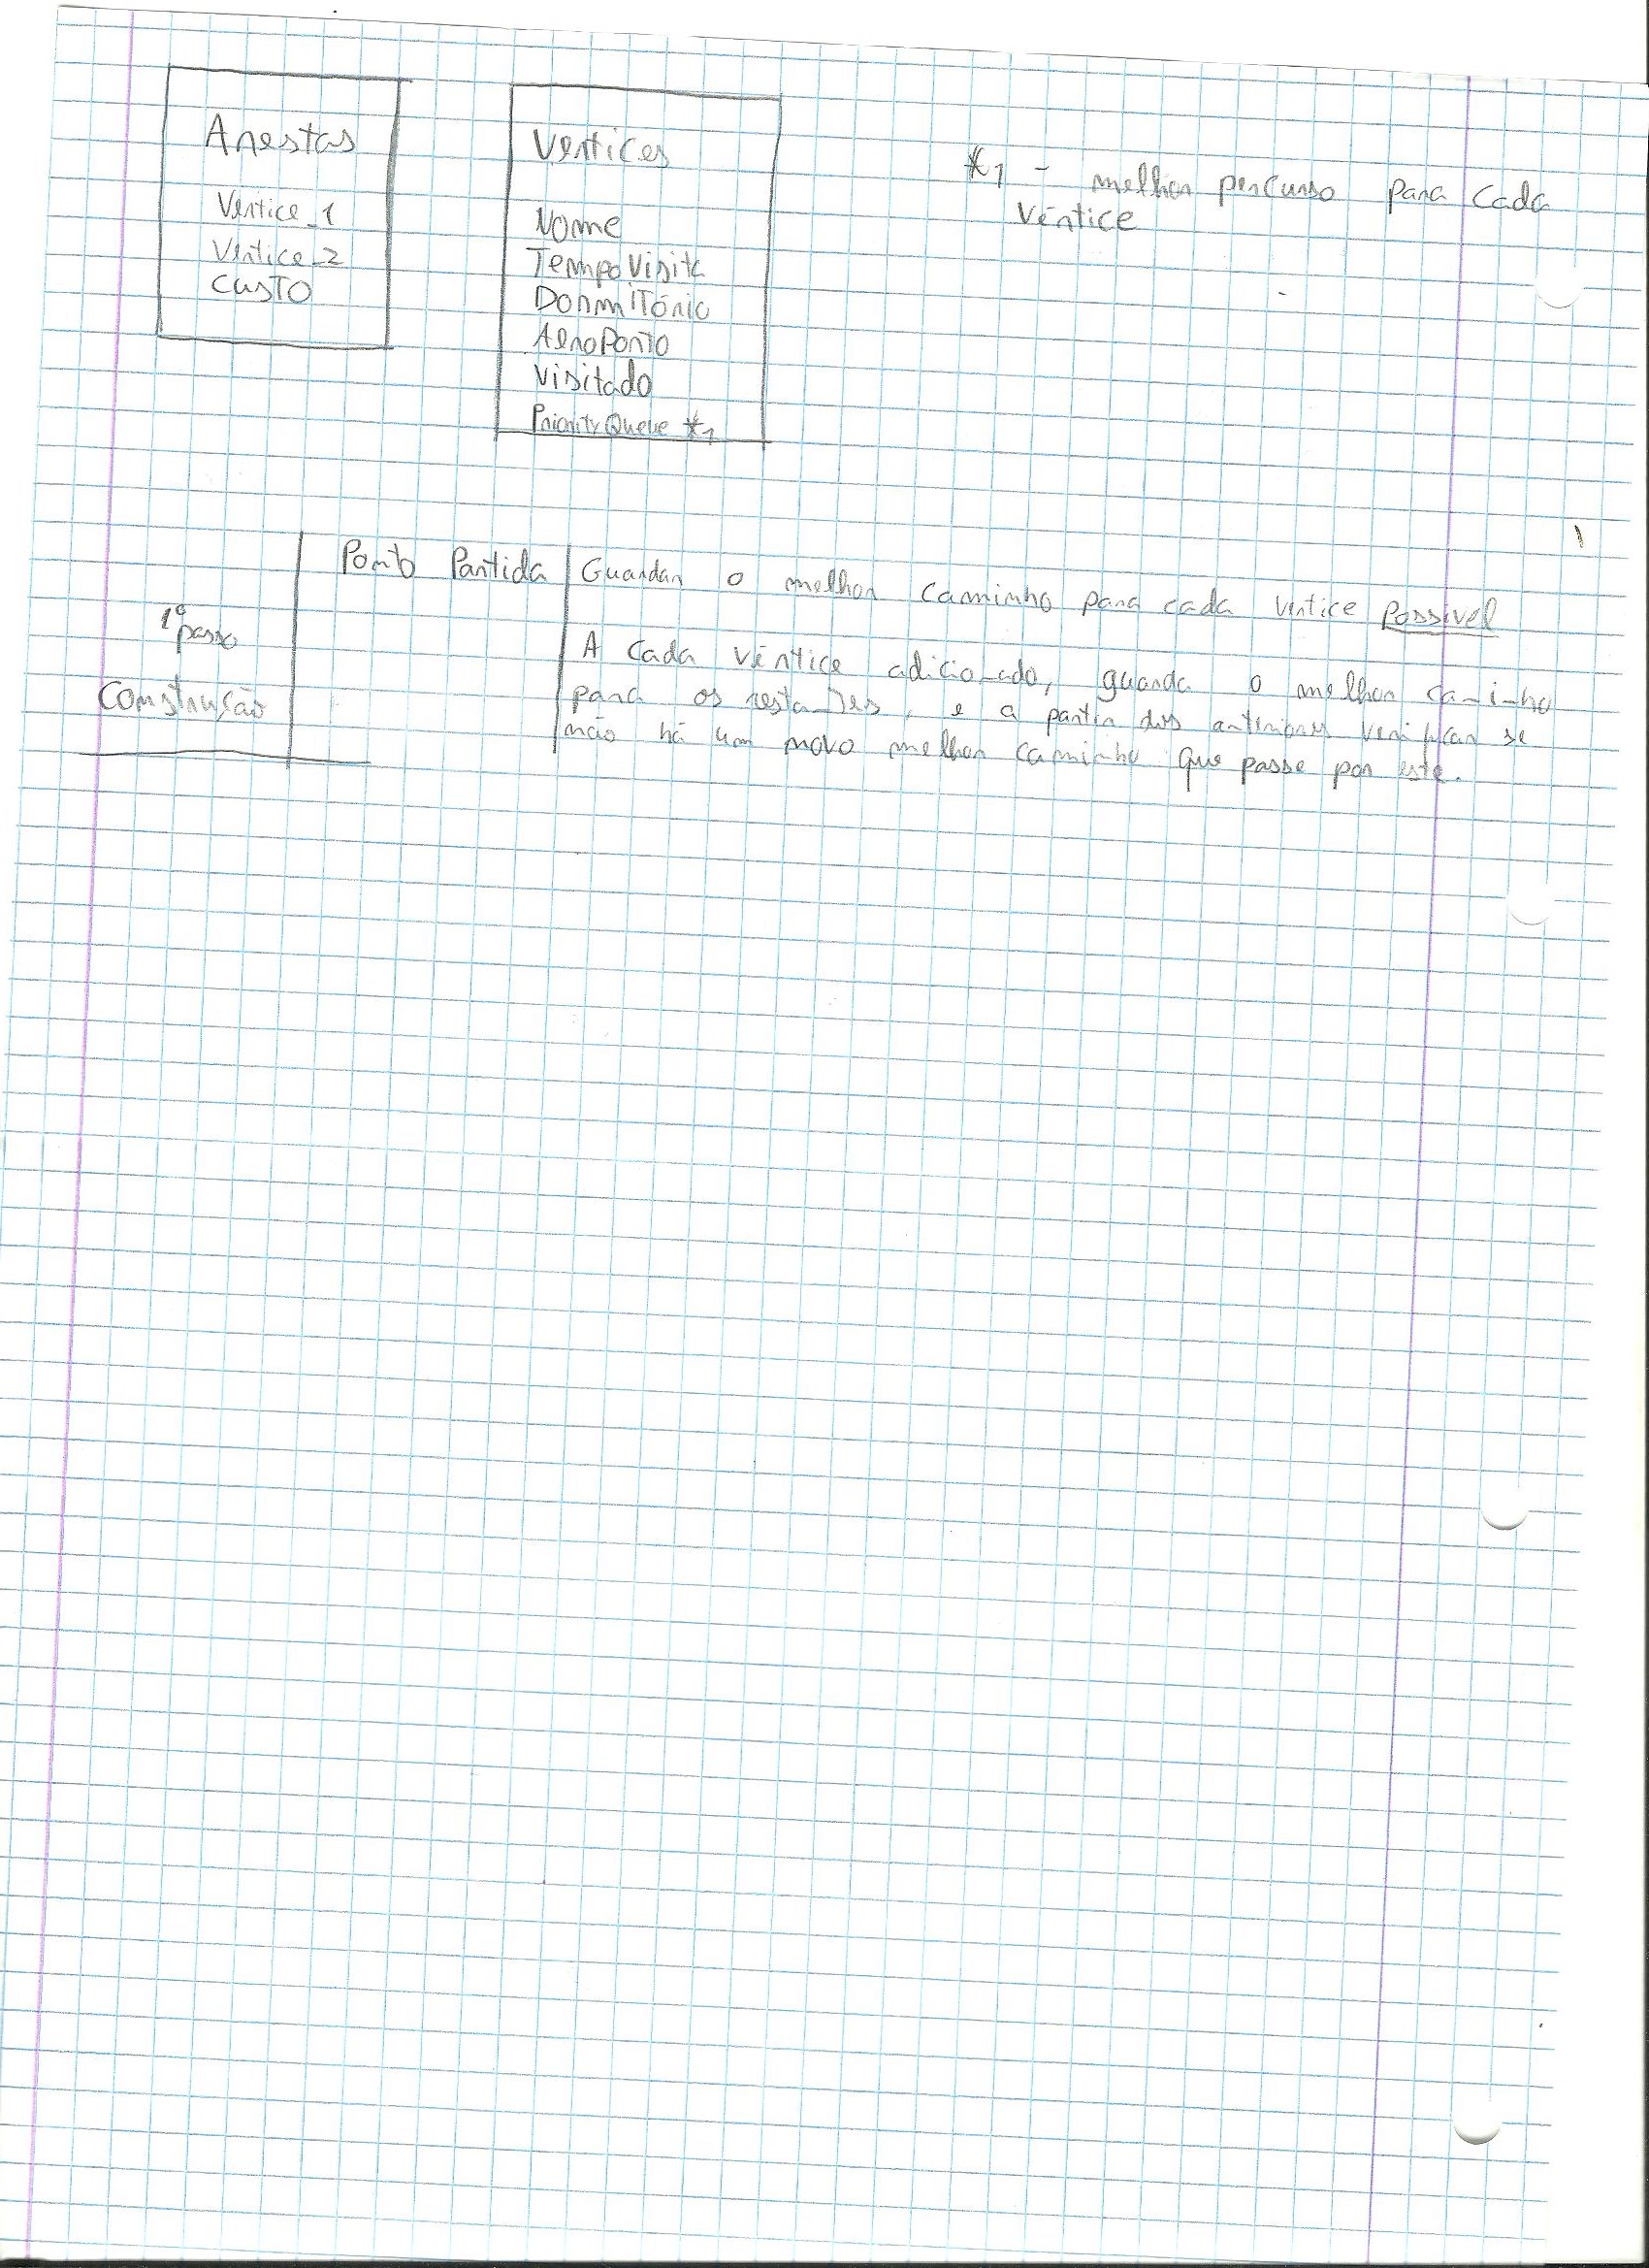 Arestas
Vertice_1
Vertice_2
Custo
Vertices
Nome
TempoVisita
Dormitório
AeroPorto
Visitado
PriorityQueue *1
*1 - melhor percurso para cada
Vértice
1º
passo
Construção
Ponto Partida
Guardar o melhor caminho para cada vertice Possível
A cada vértice adicionado, guarda o melhor caminho
para os restantes, e a partir dos anteriores verificar se
não há um novo melhor caminho que passe por este.